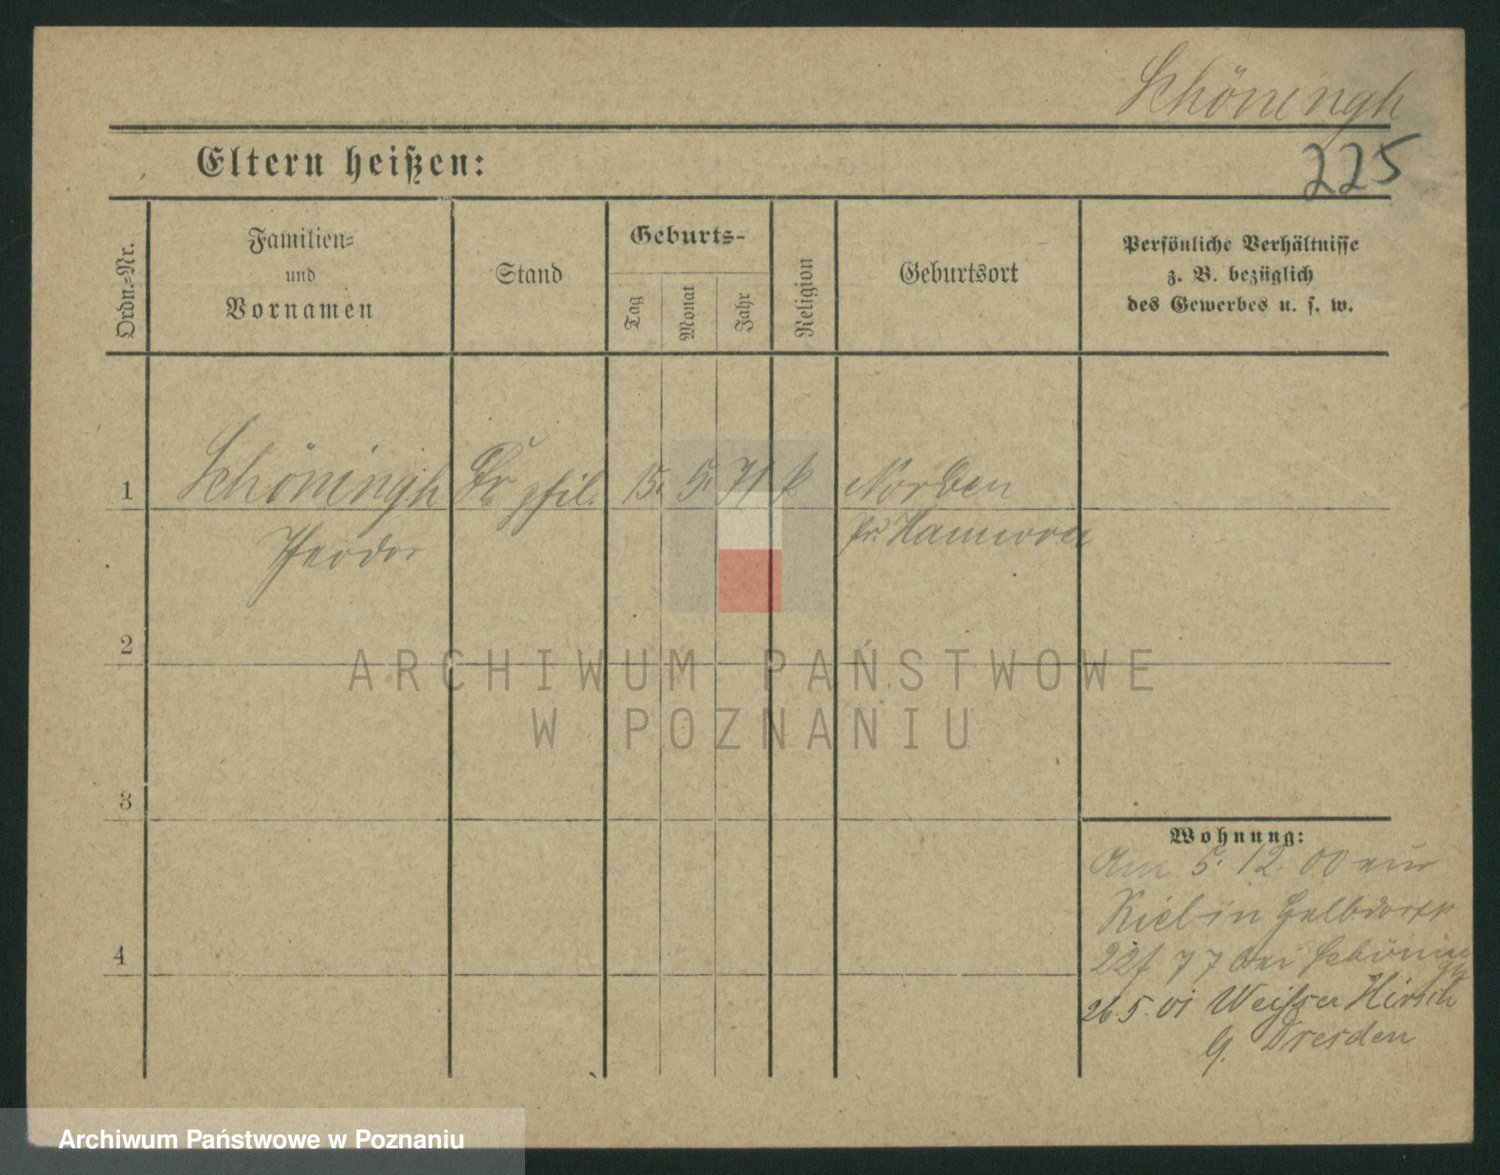 Schöningh
225
Eltern heißen:
Ordn.=Nr.
Familien=
und
Vornamen
Stand
Geburts-
Tag
Monat
Jahr
Religion
Geburtsort
Persönliche Verhältnisse
z. B. bezüglich
des Gewerbes u. s. w.
1
Schöningh Dr phil. 15. 5. 71 k Norden
Theodor
pr. Hannover
2
ARCHIWUM PAŃSTWOWE
W POZNANIU
3
Wohnung:
Am 5. 12. 00 aus
Kiel in
bei Schöningh
26 5. 01 Weißer Hirsch
b. Dresden
4
Archiwum Państwowe w Poznaniu